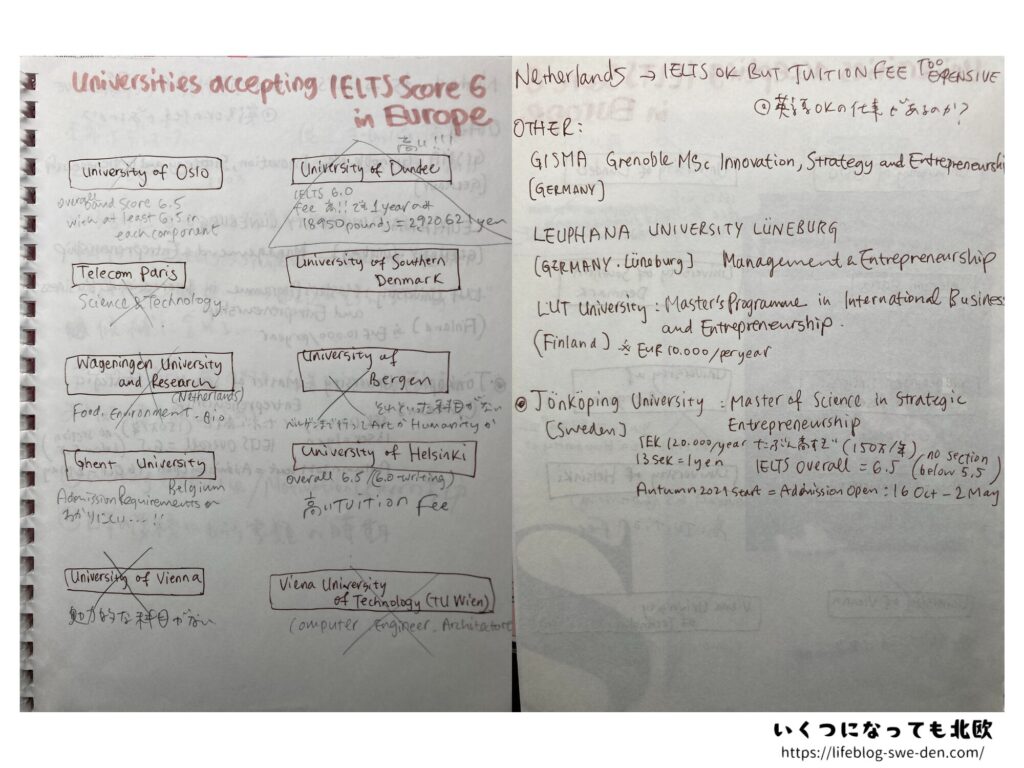 Universities accepting IELTS Score 6
in Europe
University of Oslo
overall band score 6.5
with at least 6.5 in
each component
高い!!!
University of Dundee
IELTS 6.0
fee 高!! 1year
18950pounds = 2920,621yen
Telecom Paris
Science & Technology
University of Southern
Denmark
Wageningen University
and Research
(Netherlands)
Food. Environment. Bio
University of
Bergen
科目がない
Art か Humanity か
Ghent University
Belgium
Admission Requirements が
わかりにくい...!!
University of Helsinki
overall 6.5 /(6.0-writing)
高いTuition Fee
University of Vienna
魅力的な科目がない
Viena University
of Technology (TU Wien)
Computer Engineer. Architature
Netherlands → IELTS OK BUT TUITION FEE TOO EXPENSIVE
英語OKの仕事であるのか?
OTHER:
GISMA Grenoble MSc Innovation, Strategy and Entrepreneurshi
[GERMANY]
LEUPHANA UNIVERSITY LÜNEBURG
[GERMANY. Lüneburg] Management & Entrepreneurship
LUT University : Master's Programme in International Business
and Entrepreneurship.
(Finland] ※ EUR 10.000/peryear
Jönköping University : Master of Science in Strategic
Entrepreneurship
[Sweden]
SEK 120.000/year たぶん高すぎ (150万/年)
13sek=1yen
IELTS overall = 6.5 (no section
below 5.5)
Autumn 2021 start = Admission Open : 16 Oct - 2 May
いくつになっても北欧
https://lifeblog-swe-den.com/